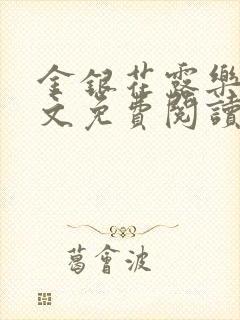 金銀花露樂
文免費閱讀
葛會波